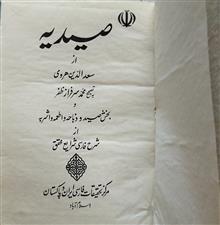 صیدیه
از
سعدالدین هروی
تصحیح محمد سرفراز ظفر
و
بخش صید و ذباحه و اطعمه و اشربه
از
شرح فارسی شرایع محقق
مرکز تحقیقات فارسی ایران و پاکستان
اسلام‌آباد